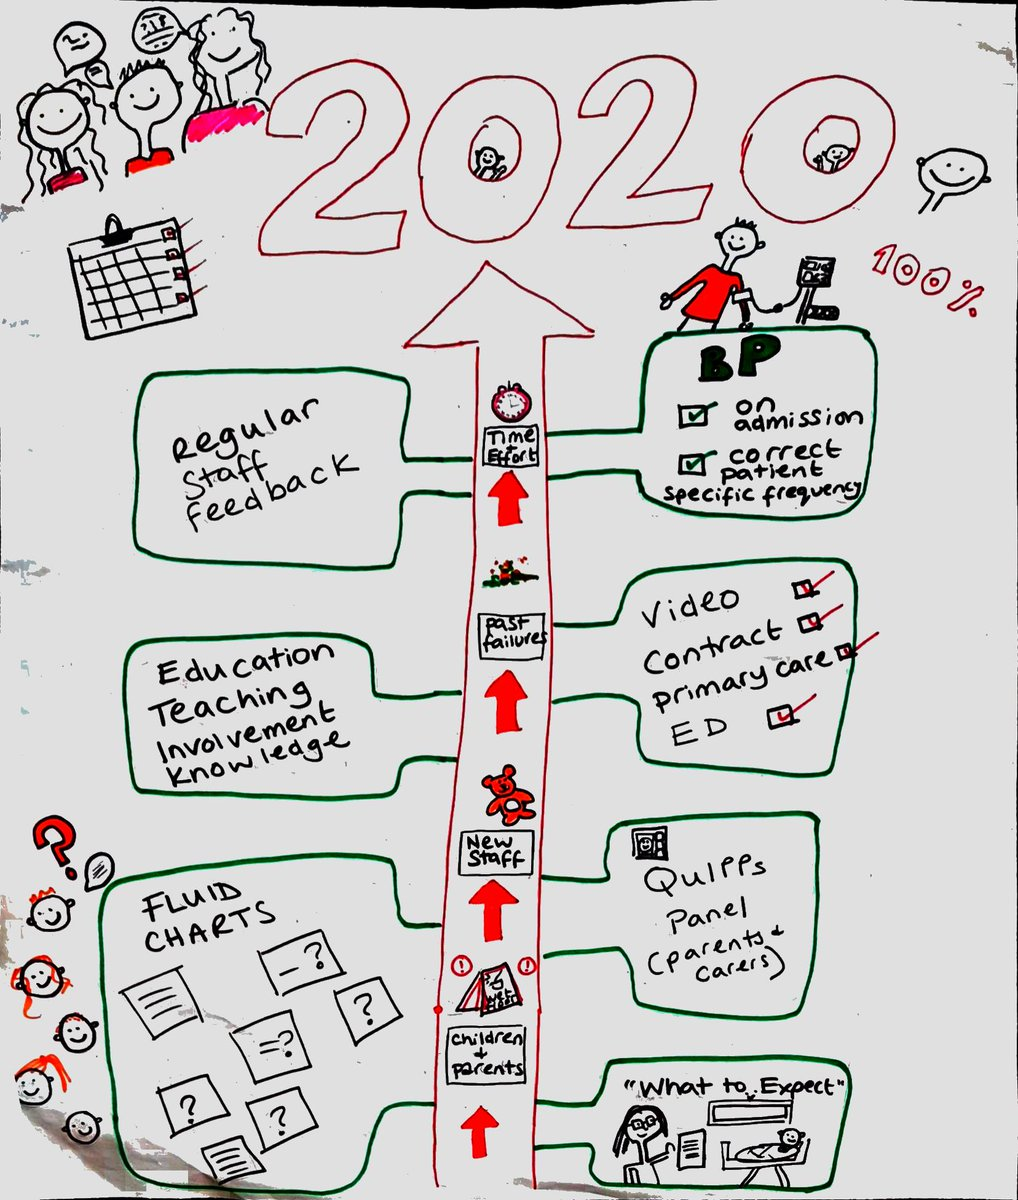 2020
100%
BP
on
admission
correct
patient
specific frequency
Regular
Staff
feedback
Time
+
Effort
past
failures
Video
Contract
primary care
ED
Education
Teaching
Involvement
Knowledge
New
Staff
QUIPPs
Panel
(parents +
carers)
?
FLUID
CHARTS
?
?
=?
?
?
! !
wet
floor
children
+
parents
"What to Expect"